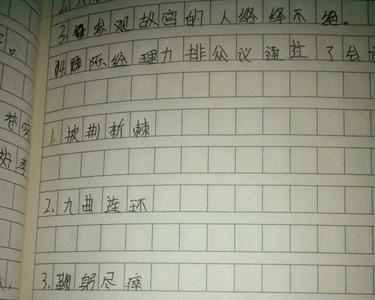 3. 参观故宫的人络绎不绝。
理力排众议通过了会
1. 披荆折棘
2. 九曲连环
3. 鞠躬尽瘁